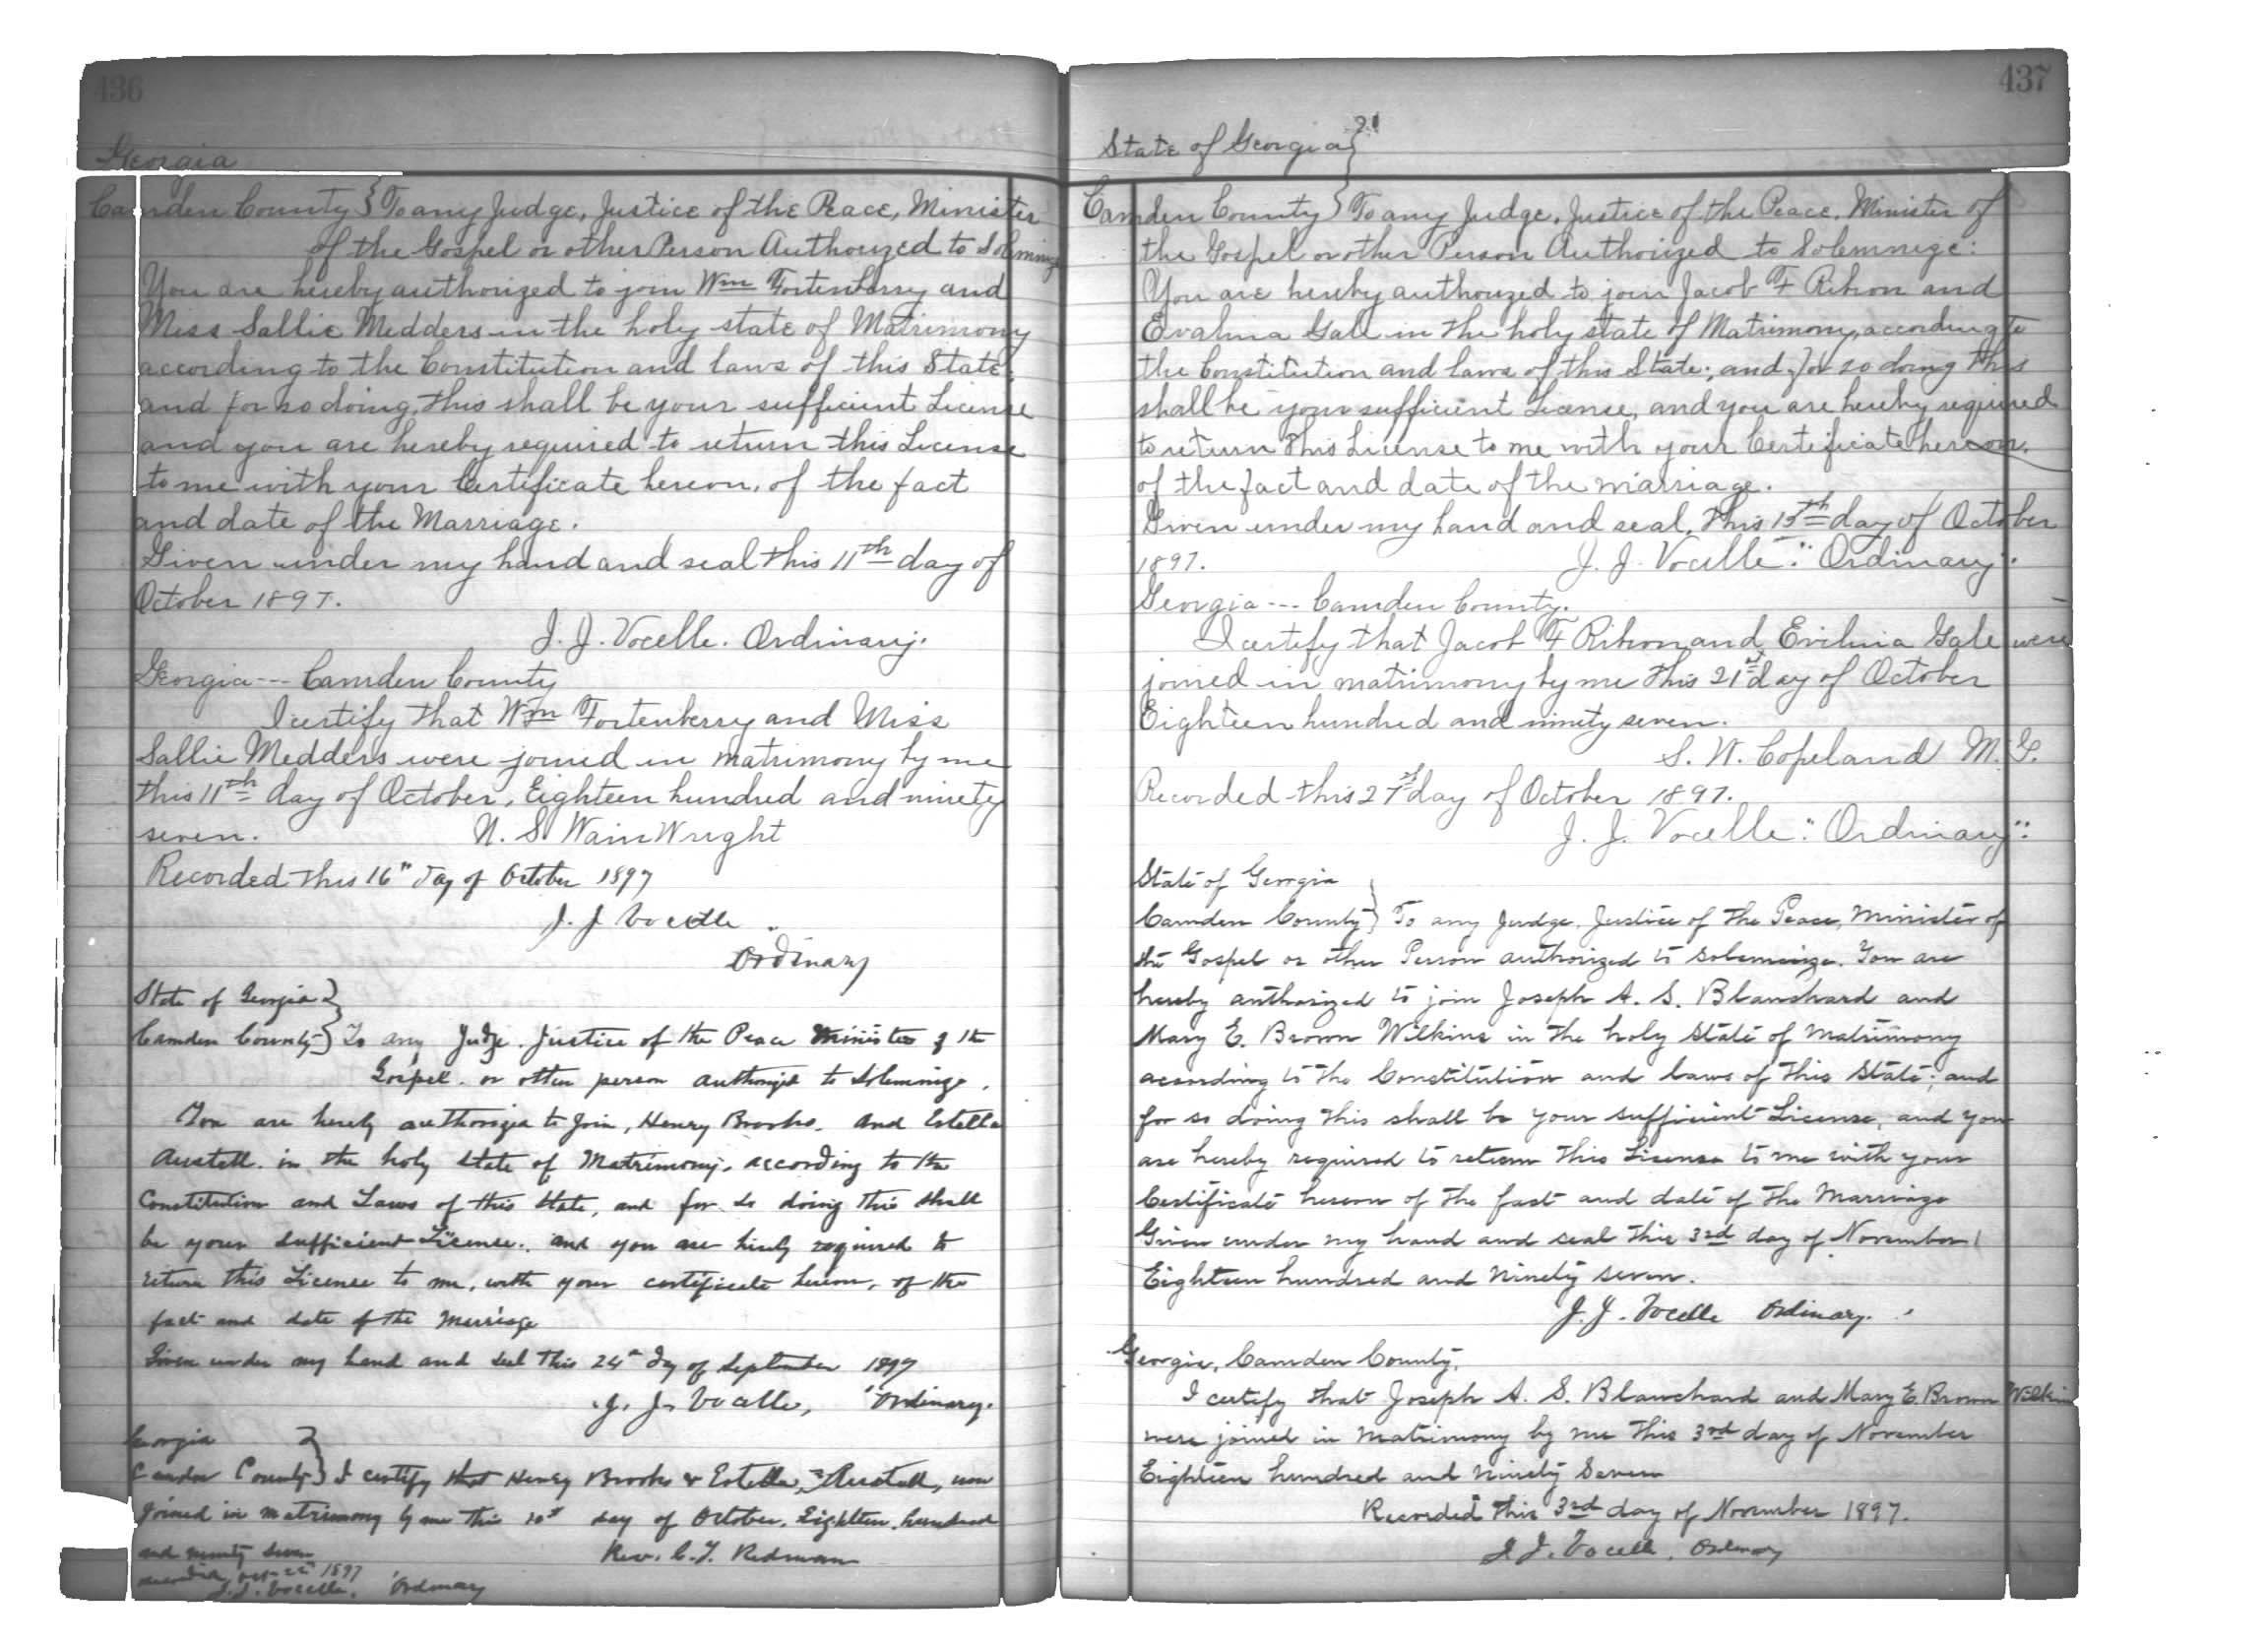 436
Georgia
Camden County } To any Judge, Justice of the Peace, Minister
of the Gospel or other Person Authorized to Solemnize
You are hereby authorized to join Wm Fortenberry and
Miss Sallie Medders in the holy state of Matrimony
according to the Constitution and laws of this State;
and for so doing, this shall be your sufficient License
and you are hereby required to return this License
to me with your Certificate hereon, of the fact
and date of the Marriage.
Given under my hand and seal this 11th day of
October 1897.
J. J. Vocelle. Ordinary.
Georgia --- Camden County
I certify that Wm Fortenberry and Miss
Sallie Medders were joined in matrimony by me
this 11th day of October, Eighteen hundred and ninety
seven. N. S. WainWright
Recorded this 16" day of October 1897
J. J. Vocelle
Ordinary
State of Georgia }
Camden County } To any Judge. Justice of the Peace Minister of the
Gospel. or other person authorized to solemnize.
You are hereby authorized to join, Henry Brooks. and Estella
Austell. in the holy state of Matrimony. according to the
Constitution and Laws of this State, and for so doing this shall
be your sufficient License., and you are hereby required to
return this License to me, with your certificate hereon, of the
fact and date of the Marriage
Given under my hand and seal this day of September 1897
J. J. Vocelle, "Ordinary.
Georgia }
Camden County } I certify that Henry Brooks & Estella Austell, were
joined in matrimony by me this day of October. Eighteen. hundred
and ninety seven Rev. C. Y. Redman
recorded Oct 1897
J. J. Vocelle. Ordinary
437
State of Georgia }
Camden County } To any Judge, Justice of the Peace, Minister of
the Gospel or other Person Authorized to Solemnize:
You are hereby authorized to join Jacob F Rihon and
Evalina Gale in the holy state of Matrimony, according to
the Constitution and laws of this State; and for so doing this
shall be your sufficient License, and you are hereby required
to return this License to me with your Certificate hereon,
of the fact and date of the marriage.
Given under my hand and seal, this 15th day of October
1897. J. J. Vocelle." Ordinary".
Georgia --- Camden County.
I certify that Jacob F Rihon and Evilina Gale were
joined in matrimony by me this 21st day of October
Eighteen hundred and ninety seven.
S. W. Copeland M. G.
Recorded this 21st day of October 1897.
J. J. Vocelle." Ordinary".
State of Georgia }
Camden County } To any Judge, Justice of the Peace, Minister of
the Gospel or other Person authorized to solemnize. You are
hereby authorized to join Joseph A. S. Blanchard and
Mary E. Brown Wilkins in the holy state of Matrimony
according to the Constitution and Laws of this State; and
for so doing this shall be your sufficient License, and you
are hereby required to return this License to me with your
Certificate hereon of the fact and date of the Marriage
Given under my hand and seal this 3rd day of November
Eighteen hundred and ninety seven.
J. J. Vocelle Ordinary.
Georgia, Camden County,
I certify that Joseph A. S. Blanchard and Mary E. Brown Wilkins
were joined in Matrimony by me this 3rd day of November
Eighteen hundred and ninety Seven
Recorded this 3rd day of November 1897.
J. J. Vocelle. Ordinary